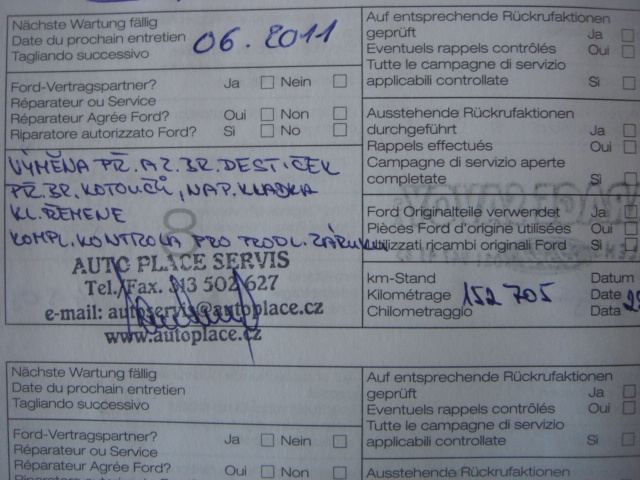 Nächste Wartung fällig
Date du prochain entretien
Tagliando successivo
06.2011
Ford-Vertragspartner? Ja Nein
Réparateur ou Service
Réparateur Agrée Ford? Oui Non
Riparatore autorizzato Ford? Si No
VÝMĚNA PŘ. A Z. BR. DESTIČEK
PŘ. BR. KOTOUČŮ, NAP. KLADKA
KL. ŘEMENE
KOMPL. KONTROLA PRO PRODL. ZÁRUKU
8
AUTO PLACE SERVIS
Tel./Fax. 313 502 627
e-mail: autoservis@autoplace.cz
www.autoplace.cz
Auf entsprechende Rückrufaktionen
geprüft Ja
Eventuels rappels contrôlés Oui
Tutte le campagne di servizio
applicabili controllate Sì
Ausstehende Rückrufaktionen
durchgeführt Ja
Rappels effectués Oui
Campagne di servizio aperte
completate Sì
Ford Originalteile verwendet Ja
Pièces Ford d'origine utilisées Oui
Utilizzati ricambi originali Ford Sì
km-Stand Datum
Kilométrage 152 705 Date
Chilometraggio Data
Nächste Wartung fällig
Date du prochain entretien
Tagliando successivo
Ford-Vertragspartner? Ja Nein
Réparateur ou Service
Réparateur Agrée Ford? Oui Non
Auf entsprechende Rückrufaktionen
geprüft Ja
Eventuels rappels contrôlés Oui
Tutte le campagne di servizio
applicabili controllate Sì
Ausstehende Rückrufaktionen